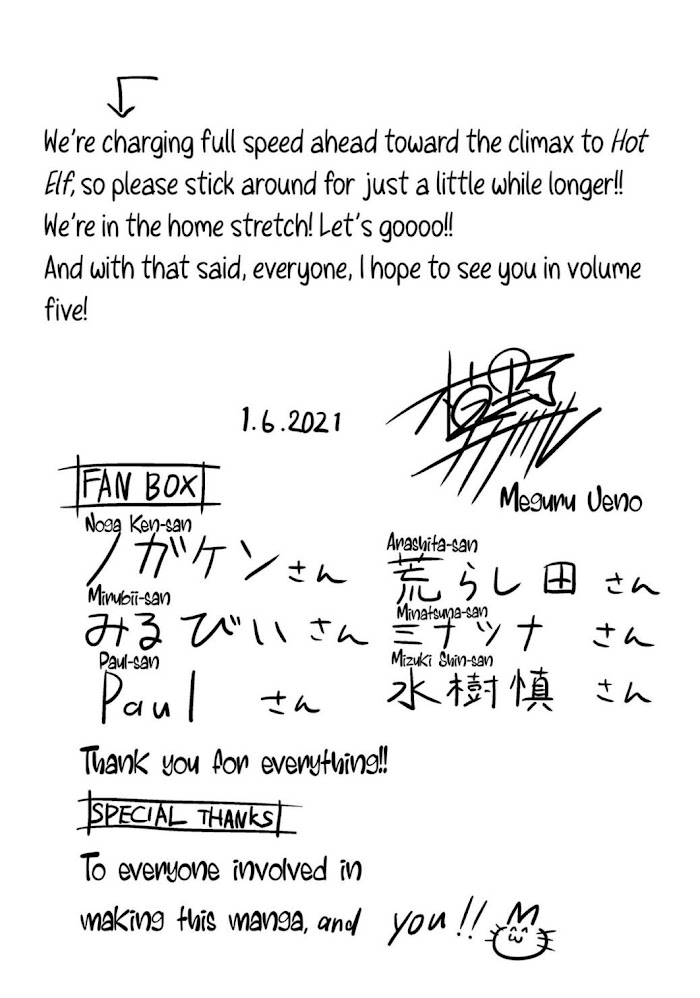 We're charging full speed ahead toward the climax to Hot
Elf, so please stick around for just a little while longer!!
We're in the home stretch! Let's goooo!!
And with that said, everyone, I hope to see you in volume
five!
1.6.2021
Meguru Ueno
FAN BOX
Noga Ken-san
ノガケンさん
Arashita-san
荒らし田さん
Mirubii-san
みるびいさん
Minatsuna-san
ミナツナさん
Paul-san
Paulさん
Mizuki Shin-san
水樹慎さん
Thank you for everything!!
SPECIAL THANKS
To everyone involved in
making this manga, and you!!